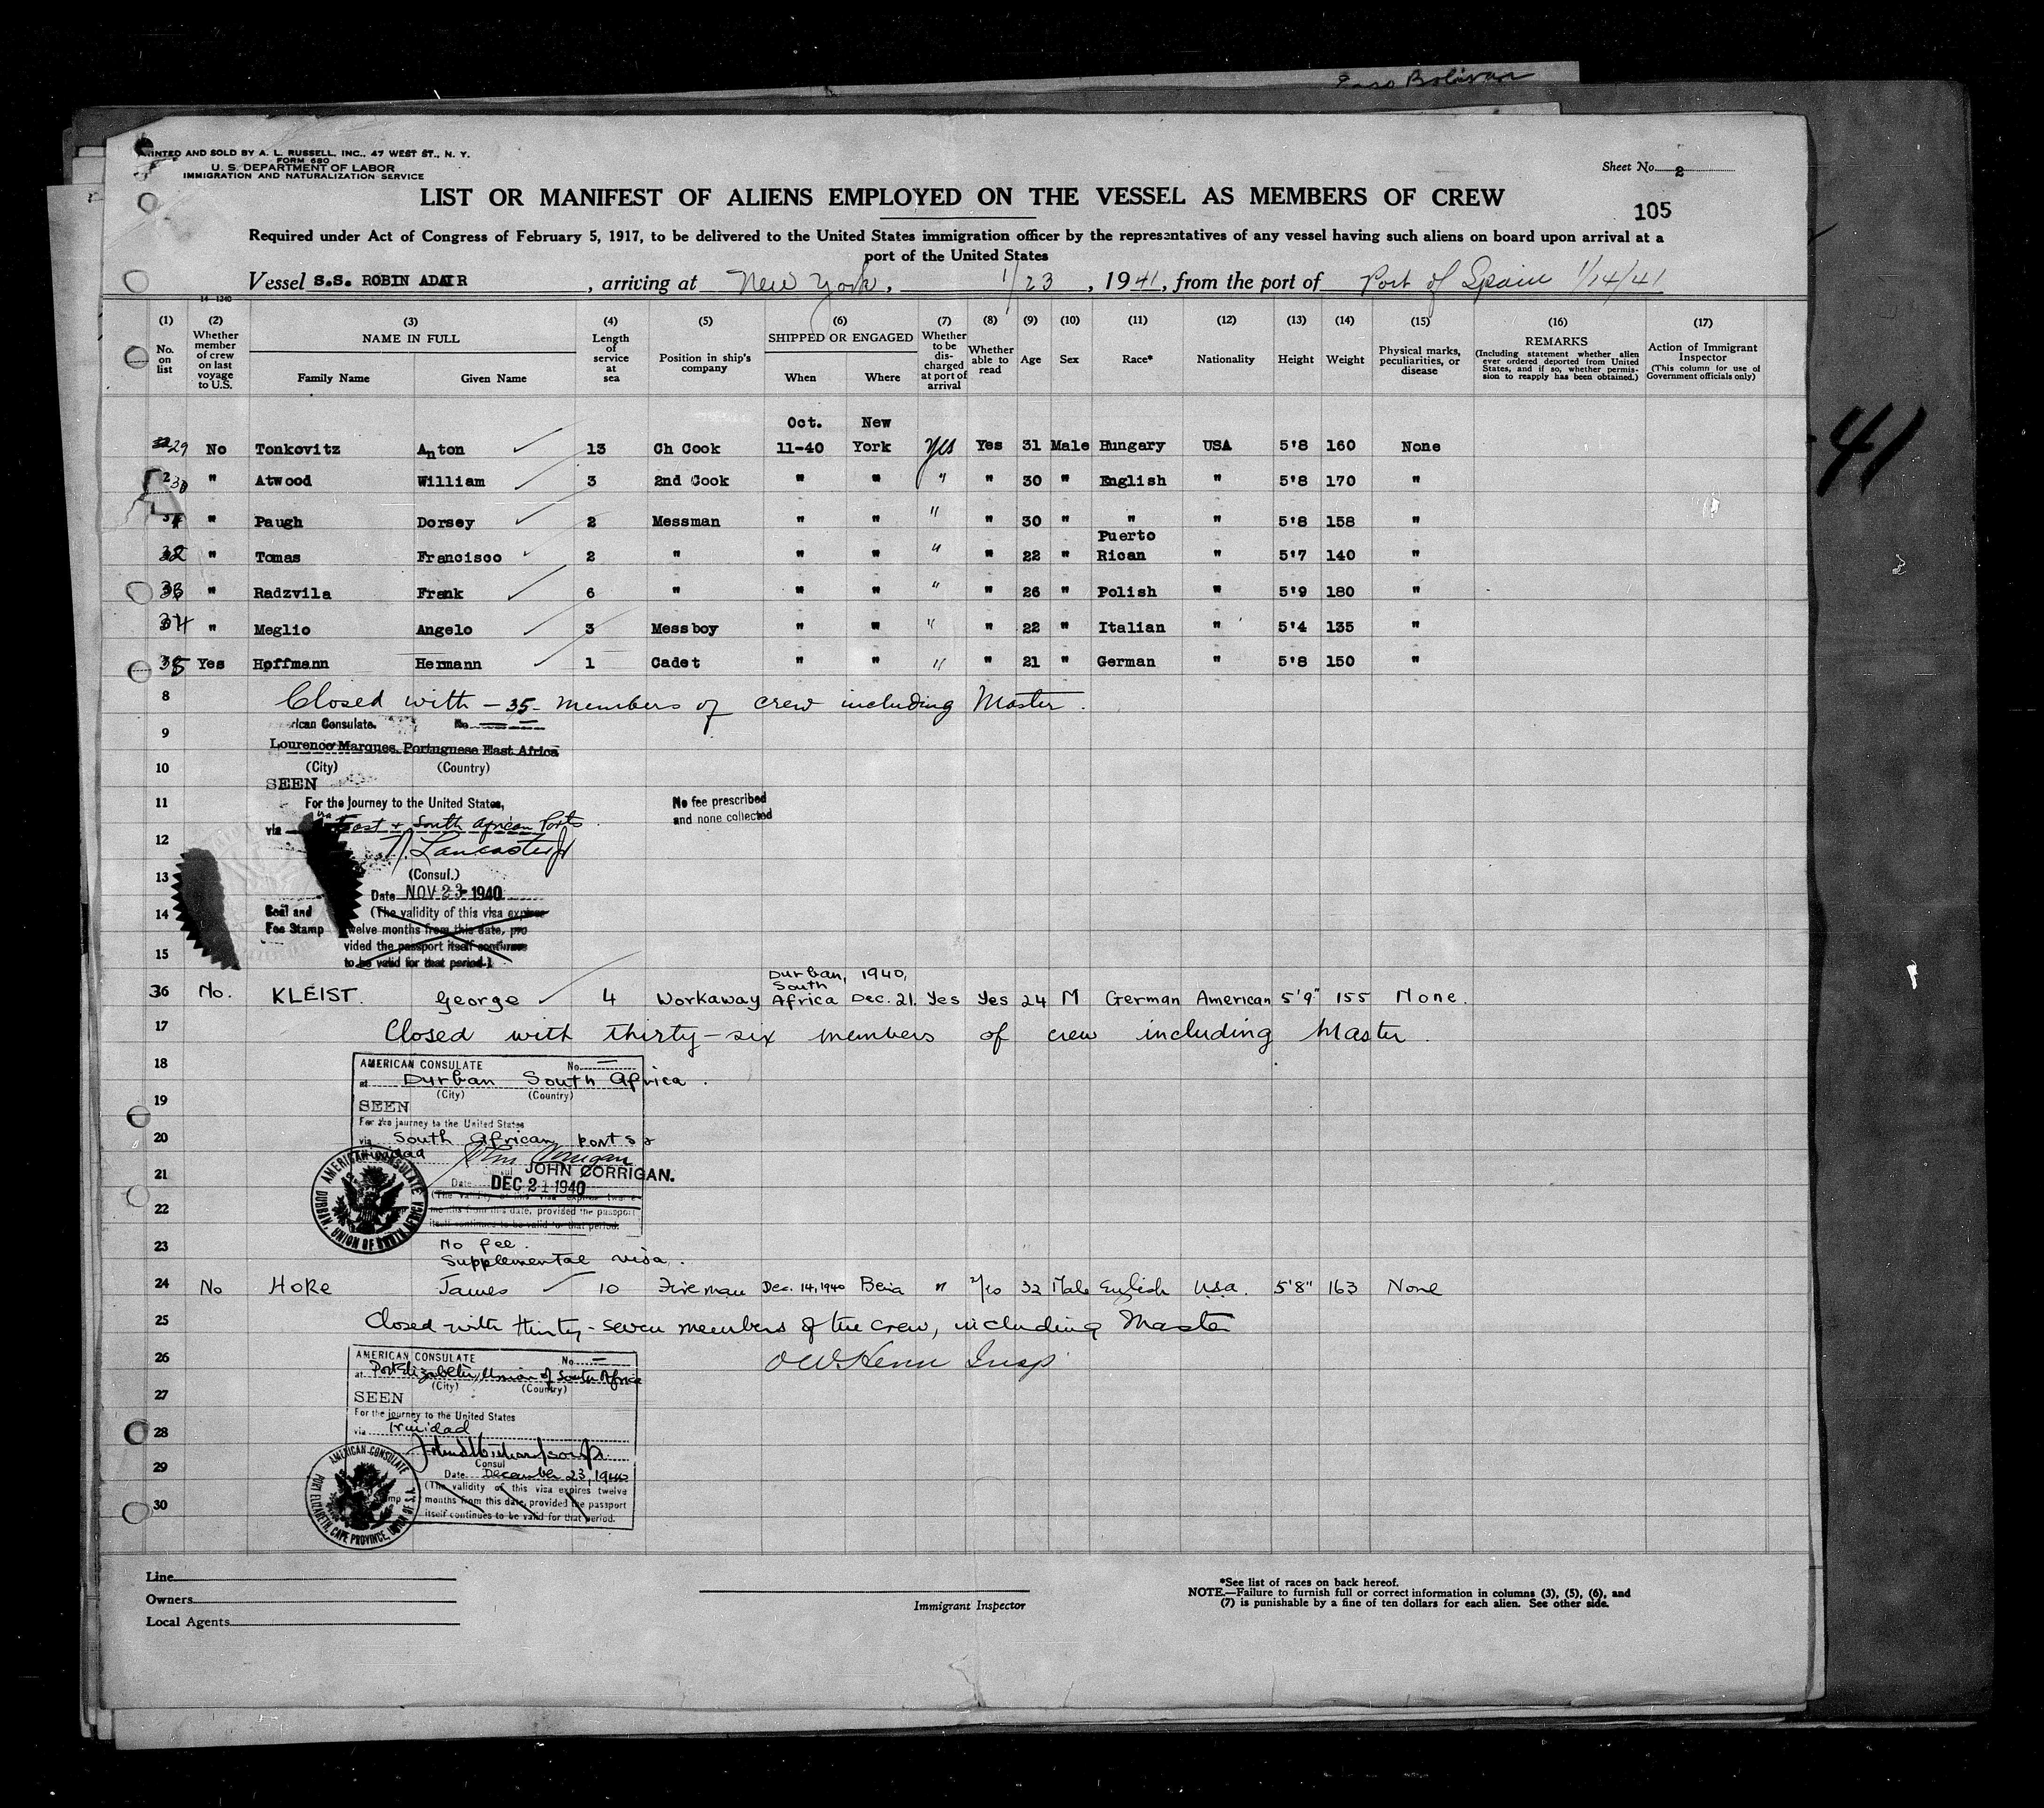 Bolivar
PRINTED AND SOLD BY A. L. RUSSELL, INC., 47 WEST ST., N. Y.
FORM 680
U. S. DEPARTMENT OF LABOR
IMMIGRATION AND NATURALIZATION SERVICE
Sheet No. 2
LIST OR MANIFEST OF ALIENS EMPLOYED ON THE VESSEL AS MEMBERS OF CREW
105
Required under Act of Congress of February 5, 1917, to be delivered to the United States immigration officer by the representatives of any vessel having such aliens on board upon arrival at a
port of the United States
Vessel S.S. ROBIN ADAIR, arriving at New York, 1/23, 1941, from the port of Port of Spain 1/14/41
14-1240
(1) No. on list (2) Whether member of crew on last voyage to U.S. (3) NAME IN FULL Family Name Given Name (4) Length of service at sea (5) Position in ship's company (6) SHIPPED OR ENGAGED When Where (7) Whether to be discharged at port of arrival (8) Whether able to read (9) Age (10) Sex (11) Race* (12) Nationality (13) Height (14) Weight (15) Physical marks, peculiarities, or disease (16) REMARKS (Including statement whether alien ever ordered deported from United States, and if so, whether permission to reapply has been obtained.) (17) Action of Immigrant Inspector (This column for use of Government officials only)
Oct. New
29 No Tonkovitz Anton 13 Ch Cook 11-40 York Yes Yes 31 Male Hungary USA 5'8 160 None
30 " Atwood William 3 2nd Cook " " " " 30 " English " 5'8 170 "
31 " Paugh Dorsey 2 Messman " " " " 30 " " " 5'8 158 "
Puerto
32 " Tomas Francisco 2 " " " " " 22 " Rican " 5'7 140 "
33 " Radzvila Frank 6 " " " " " 26 " Polish " 5'9 180 "
34 " Meglio Angelo 3 Messboy " " " " 22 " Italian " 5'4 135 "
35 Yes Hoffmann Hermann 1 Cadet " " " " 21 " German " 5'8 150 "
8 Closed with - 35 - members of crew including Master.
American Consulate. No.
9
Lourenco Marques, Portuguese East Africa
10 (City) (Country)
SEEN
11 For the journey to the United States, No fee prescribed
via East & South African Ports and none collected
12 Lancaster Jr
13 (Consul.)
Date NOV 23 1940
14 Seal and (The validity of this visa expires
Fee Stamp twelve months from this date, pro
15 vided the passport itself continues
to be valid for that period.)
Durban, 1940,
South
36 No. KLEIST. George 4 Workaway Africa Dec. 21. Yes Yes 24 M German American 5'9" 155 None.
17 Closed with thirty-six members of crew including Master.
18 AMERICAN CONSULATE No.
at Durban South Africa.
(City) (Country)
19 SEEN
For the journey to the United States
20 via South African ports &
Trinidad John Corrigan
21 Consul JOHN CORRIGAN.
Date DEC 21 1940
(The validity of this visa expires twelve
22 months from this date, provided the passport
itself continues to be valid for that period.
AMERICAN CONSULATE DURBAN, UNION OF SOUTH AFRICA
23 No fee.
Supplemental visa.
24 No Hoke James 10 Fireman Dec. 14, 1940 Beira " Yes 32 Male English USA. 5'8" 163 None
25 Closed with thirty-seven members of the crew, including Master
26 AMERICAN CONSULATE No. Insp
at Port Elizabeth, Union of South Africa
(City) (Country)
27 SEEN
For the journey to the United States
28 via Trinidad
29 Consul
Date December 23, 1940
(The validity of this visa expires twelve
30 months from this date, provided the passport
itself continues to be valid for that period.
AMERICAN CONSULATE PORT ELIZABETH, CAPE PROVINCE, UNION OF S.A.
Line
Owners
Local Agents
Immigrant Inspector
*See list of races on back hereof.
NOTE.—Failure to furnish full or correct information in columns (3), (5), (6), and
(7) is punishable by a fine of ten dollars for each alien. See other side.
-41